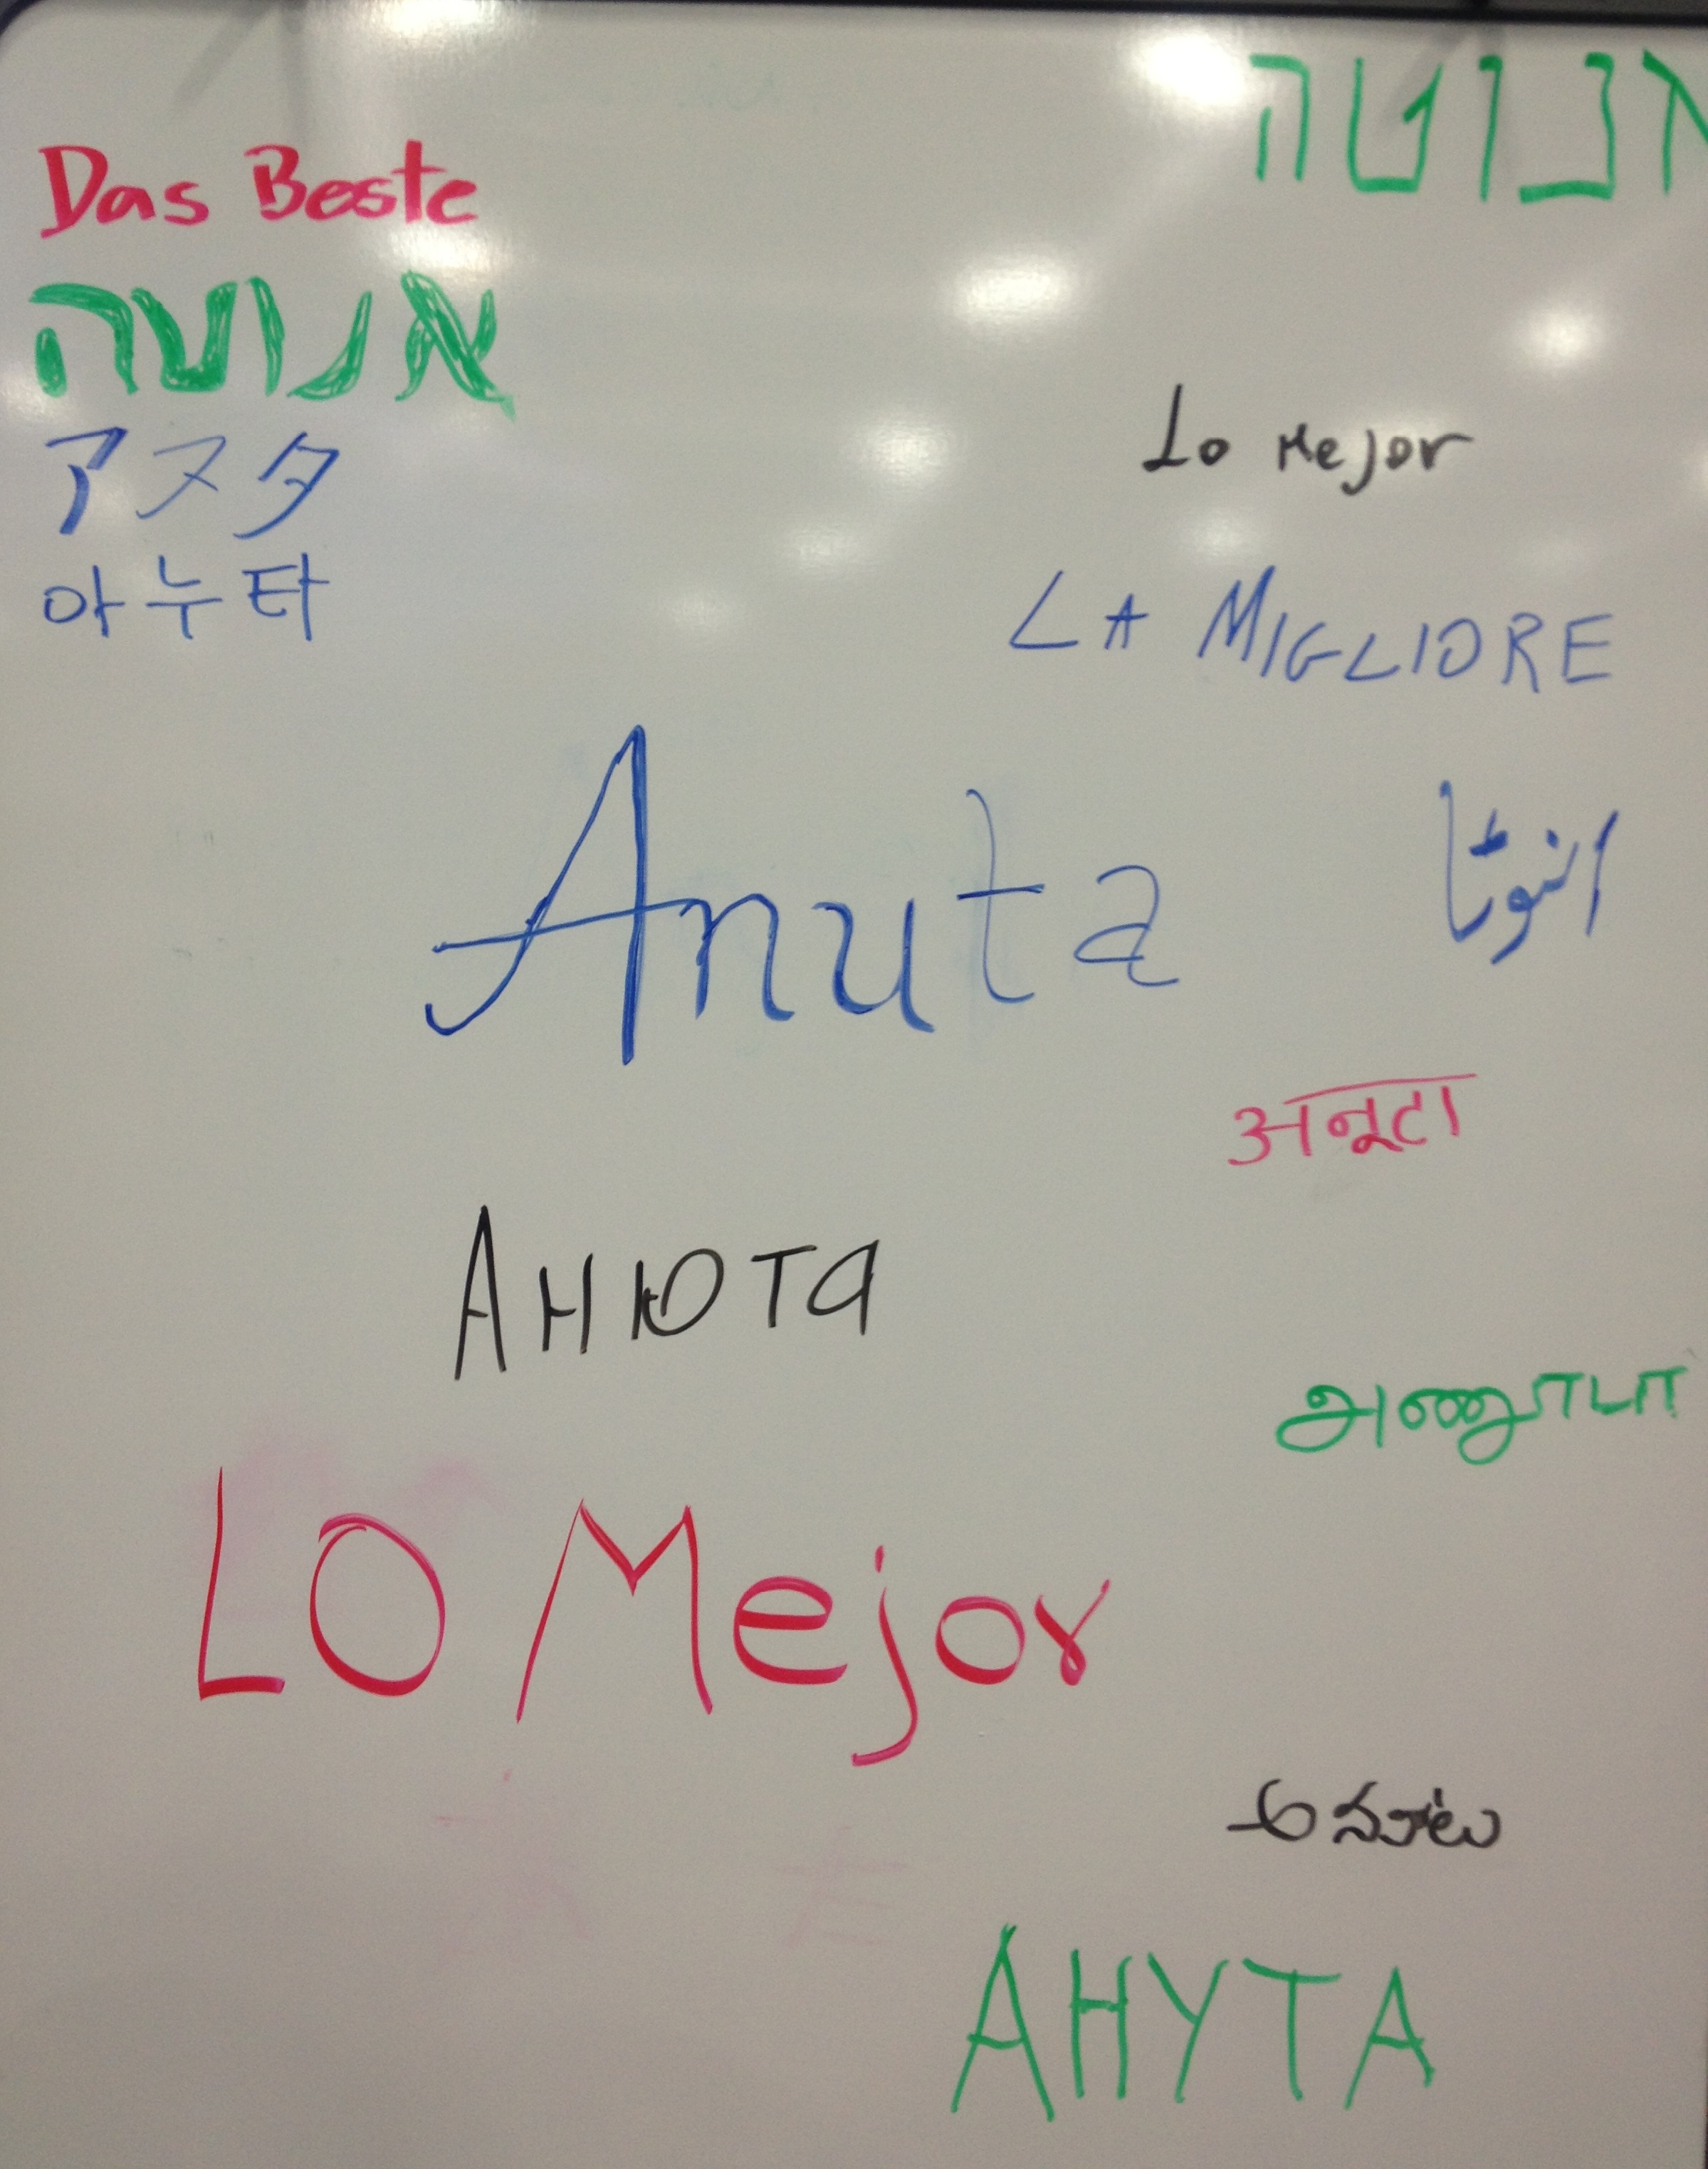 אנוטה
Das Beste
אנוטה
アヌタ
아누타
Lo Mejor
LA MIGLIORE
Anuta
انوٹا
अनूटा
Анюта
அணூடா
LO Mejor
అనూట
АНУТА